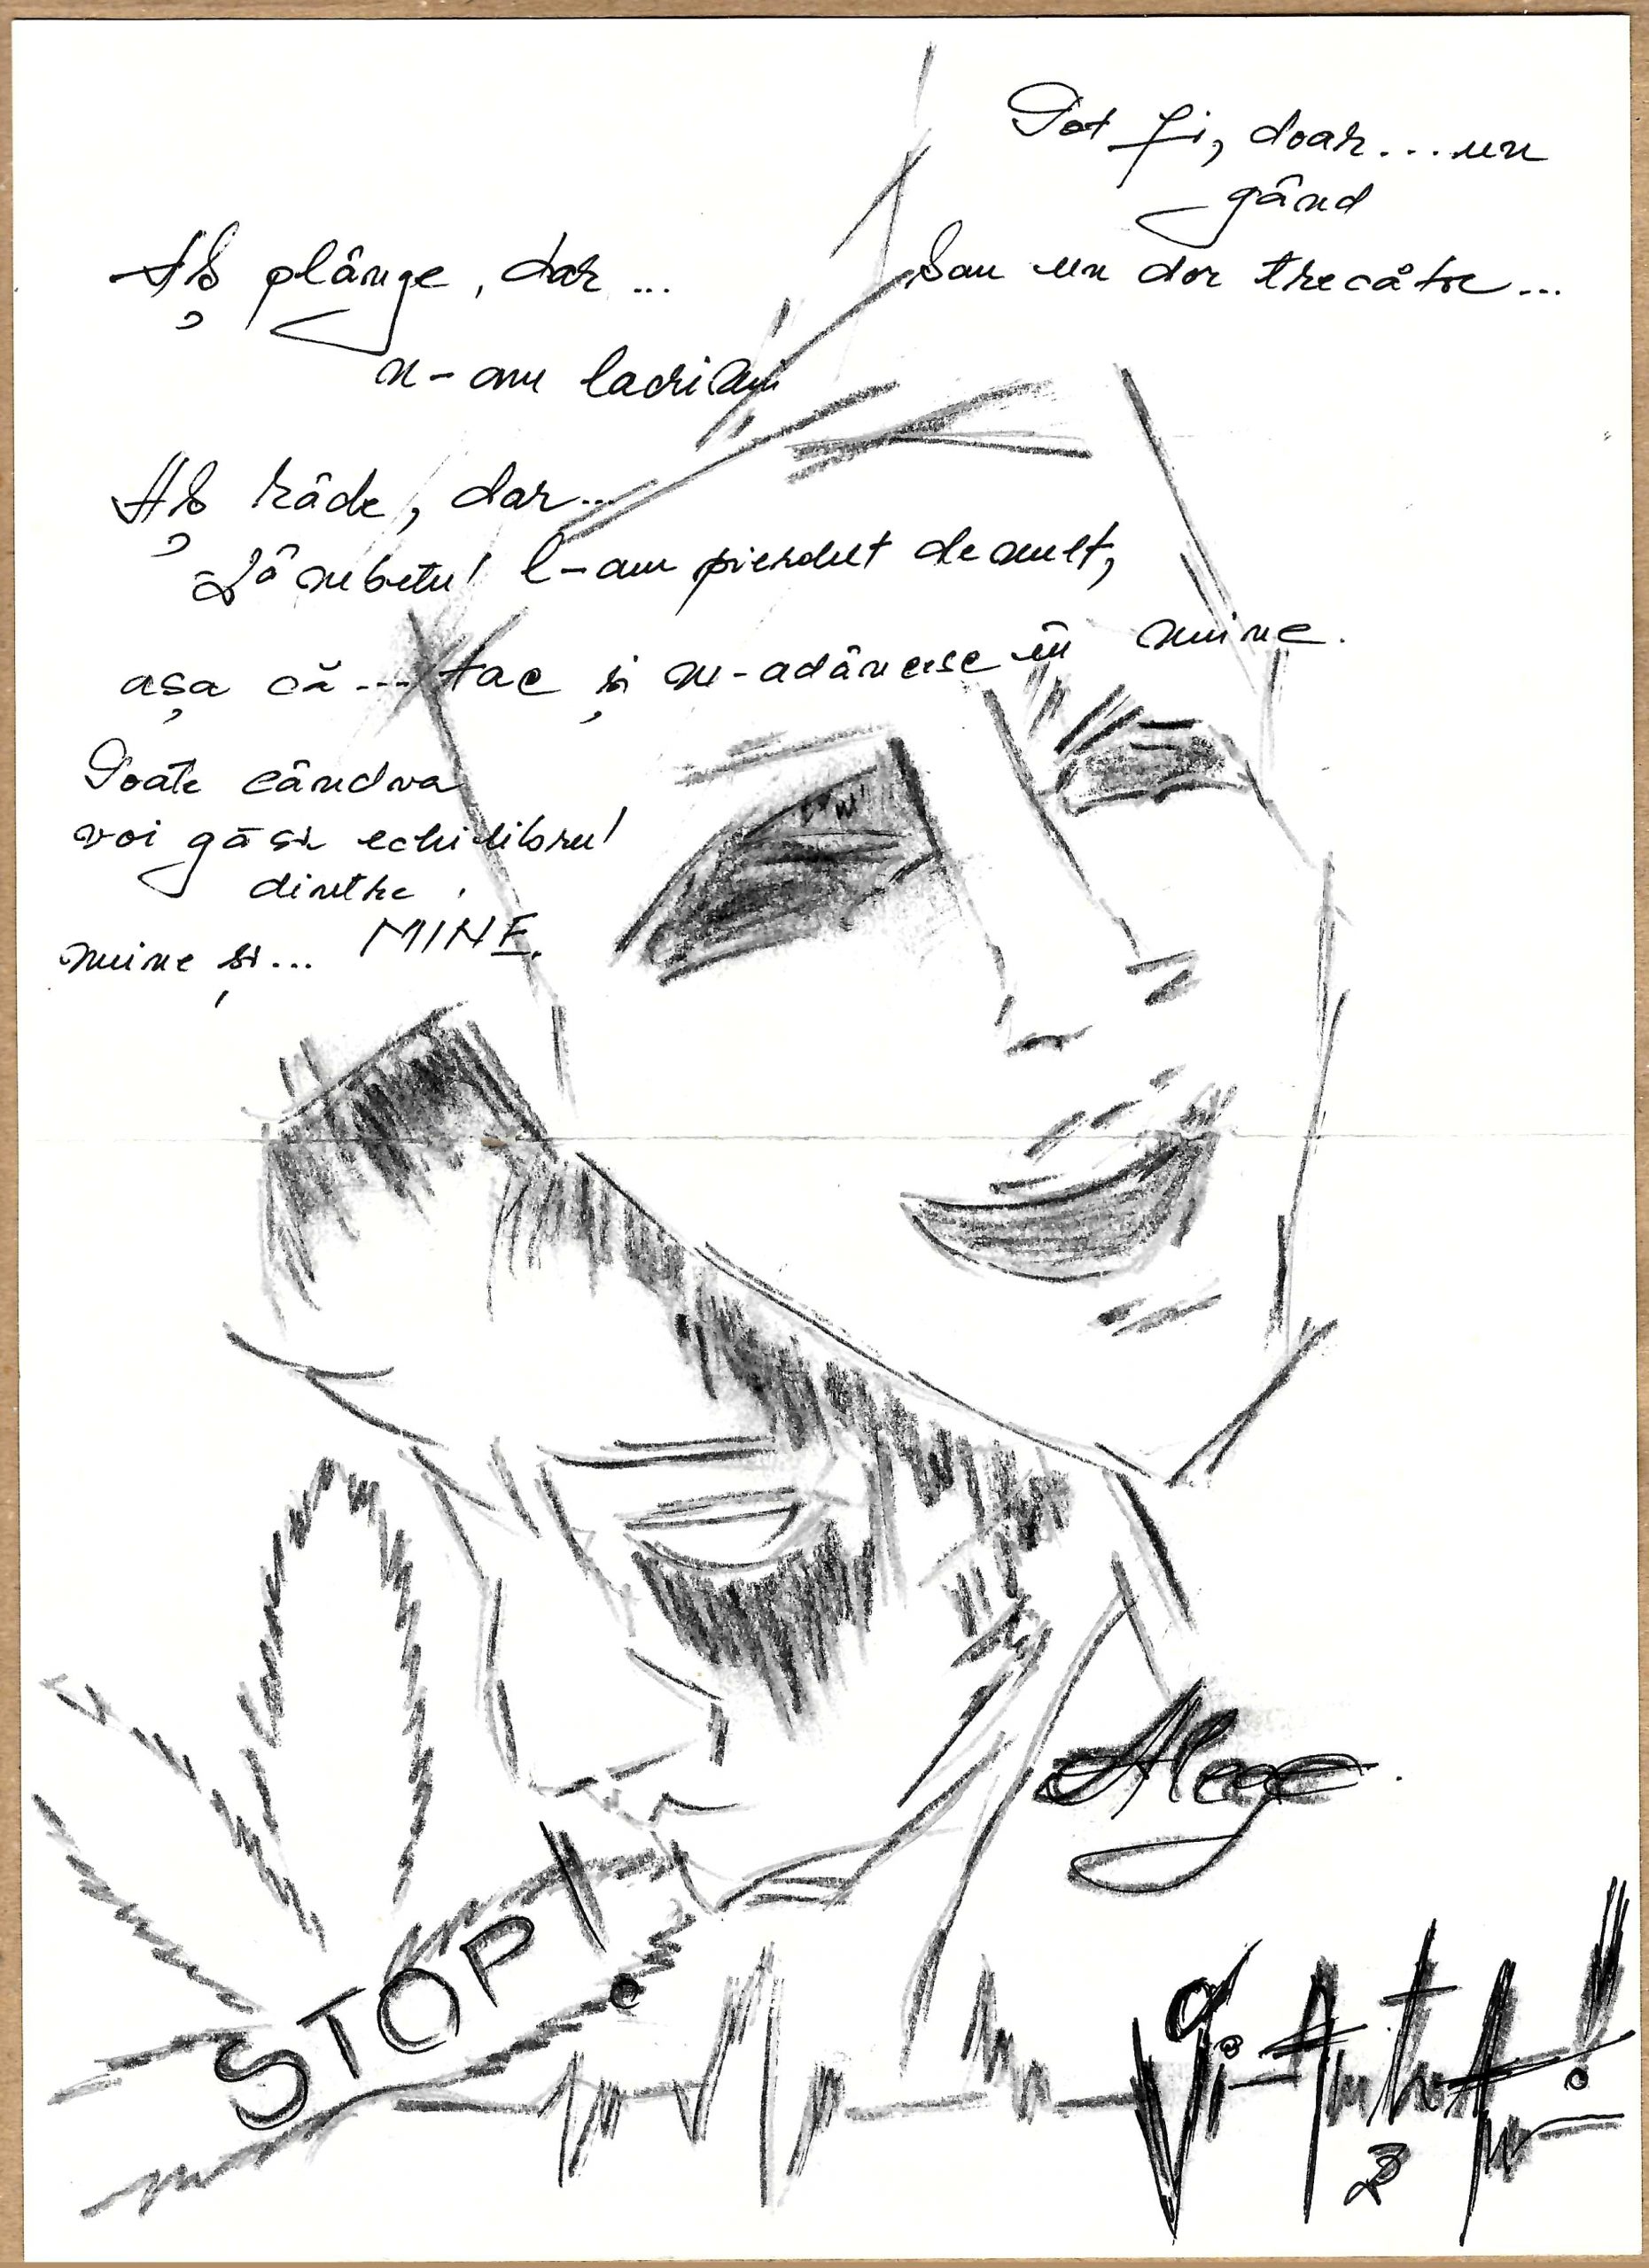 Pot fi, doar...un
gând
Sau un dor trecător...
Aș plânge, dar...
n-am lacrimi
Aș râde, dar...
Zâmbetul l-am pierdut demult,
așa că... tac și m-adâncesc în mine.
Poate cândva
voi găsi echilibrul
dintre
mine și... MINE.
Alege.
STOP!